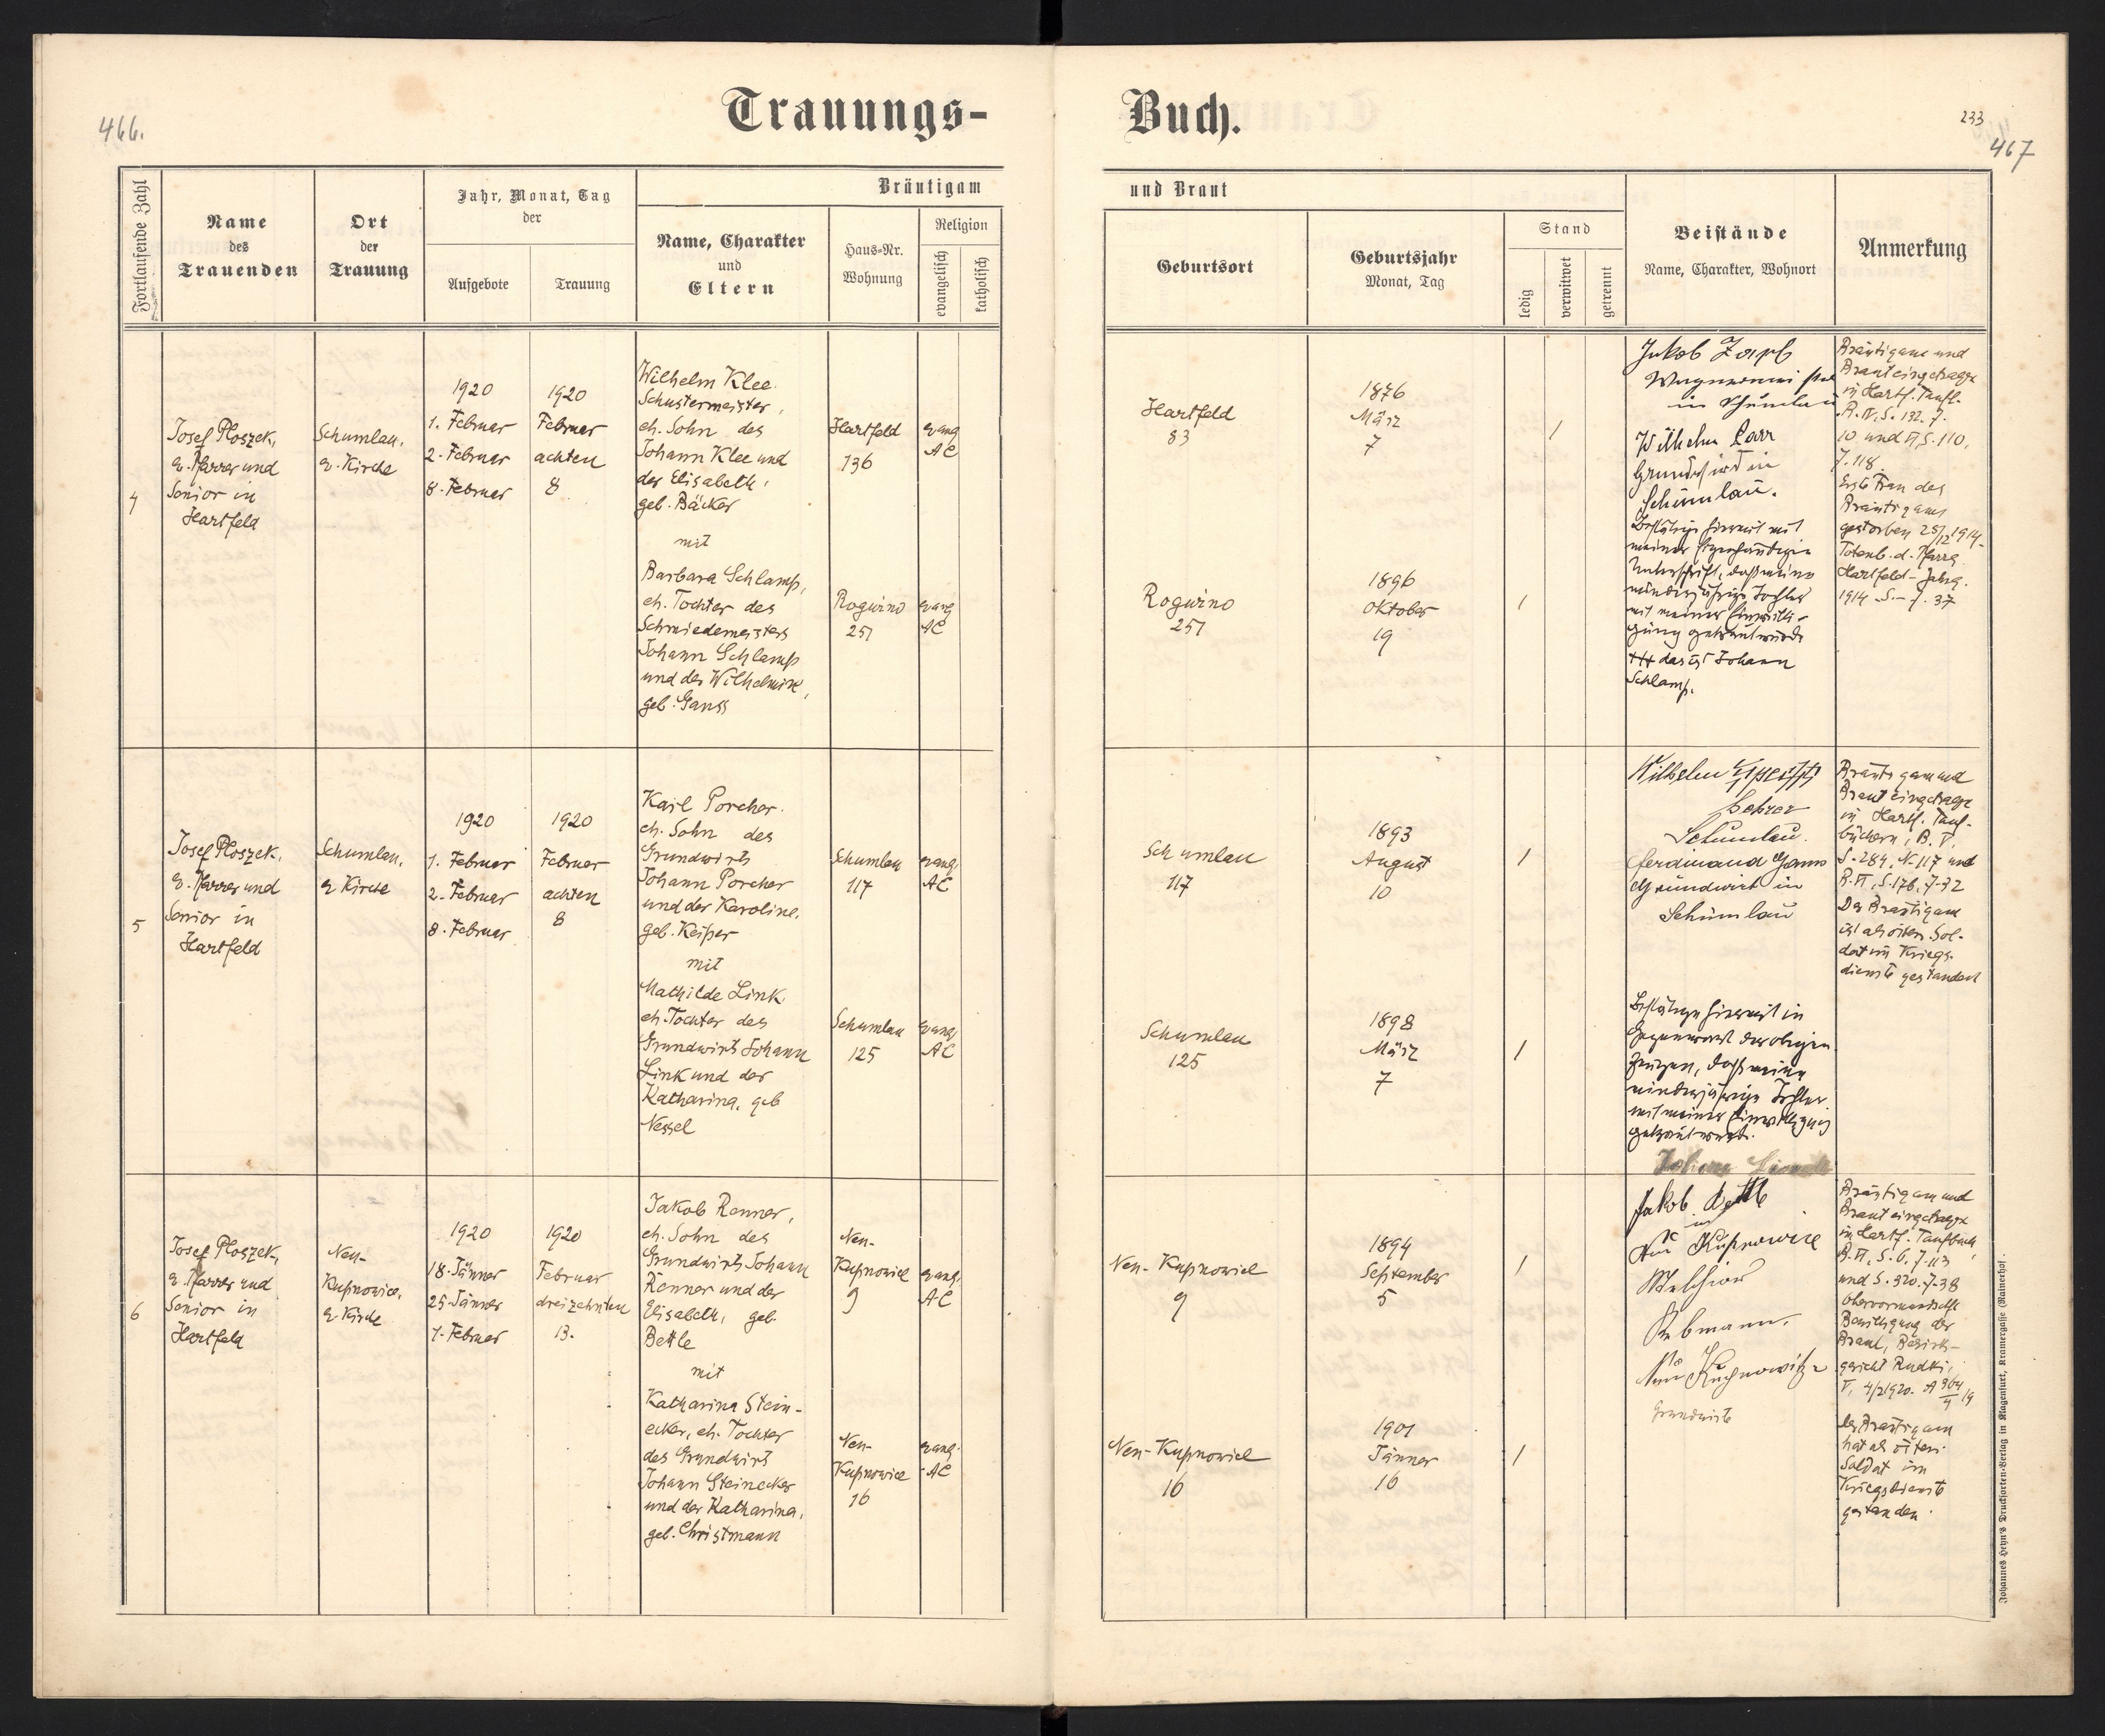 466.
Trauungs-
Buch.
233
467
Fortlaufende Zahl
Name
des
Trauenden
Ort
der
Trauung
Jahr, Monat, Tag
der
Aufgebote
Trauung
Bräutigam
Name, Charakter
und
Eltern
Haus-Nr.
Wohnung
Religion
evangelisch
katholisch
und Braut
Geburtsort
Geburtsjahr
Monat, Tag
Stand
ledig
verwitwet
getrennt
Beistände
Name, Charakter, Wohnort
Anmerkung
4
Josef Ploszek,
e. Pfarrer und
Senior in
Hartfeld
Schumlau,
e. Kirche
1920
1. Februar
2. Februar
8. Februar
1920
Februar
achten
8
Wilhelm Klee
Schustermeister,
eh. Sohn des
Johann Klee und
der Elisabeth,
geb. Bäcker
mit
Barbara Schlamp,
eh. Tochter des
Schmiedemeisters
Johann Schlamp
und der Wilhelmine,
geb. Ganss
Hartfeld
136
evang
AC
Roguzno
251
evang
AC
Hartfeld
83
1876
März
7
/
Roguzno
251
1896
Oktober
19
/
Jakob Zapf
in Schumlau
Wilhelm Parr
Grundwirt in
Schumlau.
Bestätige hiermit mit
meiner eigenhändigen
Unterschrift, daß meine
minderjährige Tochter
mit meiner Einwilli-
gung getraut wurde
+++ das ist Johann
Schlamp.
Bräutigam und
Braut eingetragen
in Hartf. Taufb.
B. IV, S. 132. 7.
10 und VI, S. 110,
7. 118
Erste Frau des
Bräutigams
gestorben 25/12 1914.
Totenb. d. Pfarre
Hartfeld - Jahrg.
1914 - S. - 7. 37
5
Josef Ploszek,
e. Pfarrer und
Senior in
Hartfeld
Schumlau,
e Kirche
1920
1. Februar
2. Februar
8. Februar
1920
Februar
achten
8
Karl Porcher.
eh. Sohn des
Grundwirts
Johann Porcher
und der Karoline,
geb. Keiper
mit
Mathilde Link
eh. Tochter des
Grundwirts Johann
Link und der
Katharina, geb
Nessel
Schumlau
117
evang
AC
Schumlau
125
evang
AC
Schumlau
117
1893
August
10
/
Schumlau
125
1898
März
7
/
Wilhelm
Lehrer
Schumlau.
Ferdinand Ganss
Grundwirt in
Schumlau
Bestätige hiermit in
Gegenwart der obigen
Zeugen, daß meine
minderjährige Tochter
mit meiner Einwilligung
getraut wurde.
Johann
Bräutigam und
Braut eingetragen
in Hartf. Tauf-
büchern, B. V,
S. 284, N. 117 und
B. VI, S. 176, 7. 32
Der Bräutigam
ist als österr. Sol-
dat im Kriegs-
dienste gestanden
6
Josef Ploszek,
e. Pfarrer und
Senior in
Hartfeld
Neu-
Kupnowice,
e Kirche
1920
18. Jänner
25. Jänner
1. Februar
1920
Februar
dreizehnten
13.
Jakob Renner,
eh. Sohn des
Grundwirts Johann
Renner und der
Elisabeth, geb.
Bettle
mit
Katharina Stein-
ecker, eh. Tochter
des Grundwirts
Johann Steinecker
und der Katharina,
geb. Christmann
Neu-
Kupnowice
9
evang.
AC
Neu-
Kupnowice
16
evang.
AC
Neu-Kupnowice
9
1894
September
5
/
Neu-Kupnowice
16
1901
Jänner
16
/
Jakob Bettle
in
Neu Kupnowice
Melchior
Rebmann.
Neu Kupnowitze
Grundwirte
Bräutigam und
Braut eingetragen
in Hartf. Taufbuch,
B. VI, S. 6, 7. 113
und S. 320. 7. 38
Obervormundschftl
Bewilligung der
Braut, Bezirks-
gericht Rudki,
V, 4/2 1920. A 364/4 19
Der Bräutigam
hat als österr.
Soldat im
Kriegsdienste
gestanden.
Johannes Heyn's Drucksorten-Verlag in Klagenfurt, Kramergasse (Rainerhof).